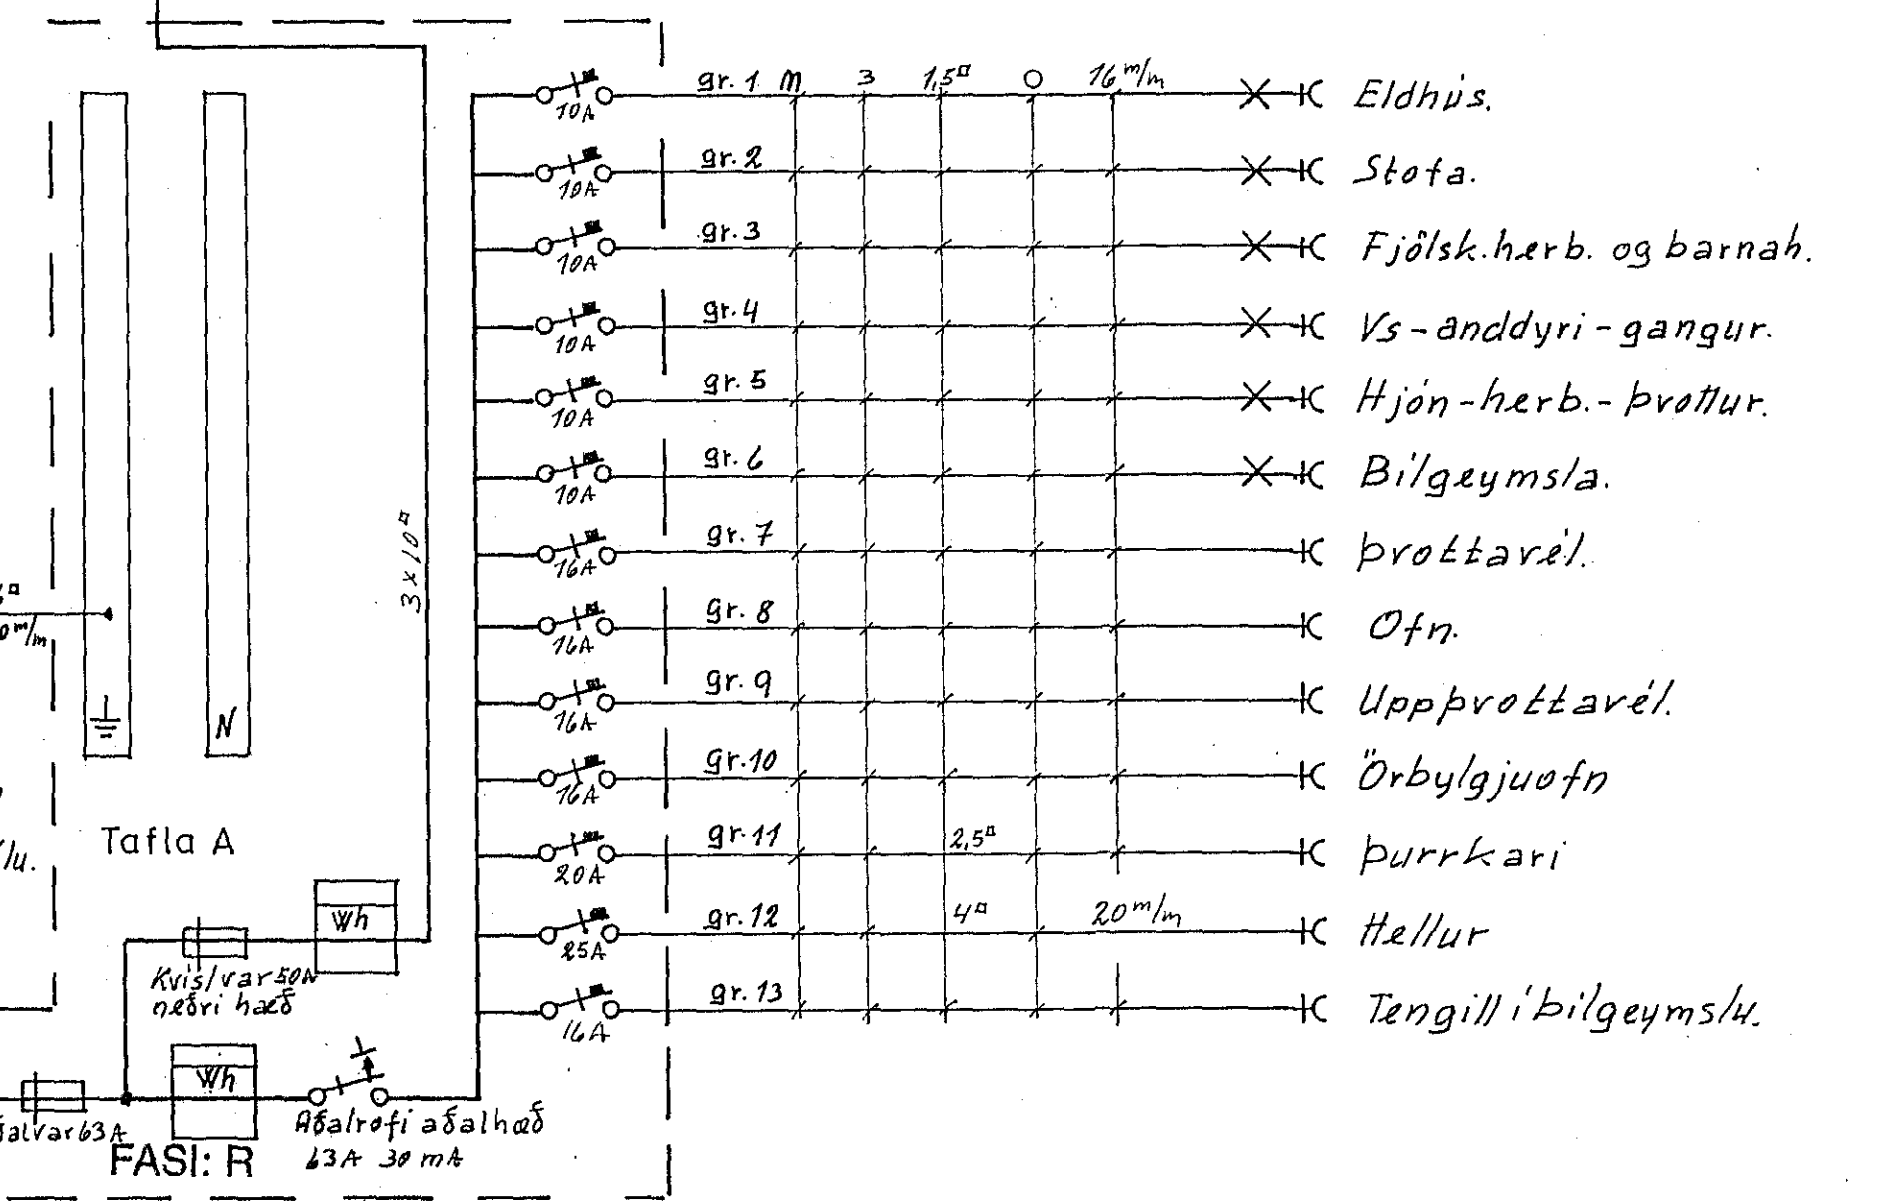 gr. 1 m 3 1,5¤ O 16 m/m Eldhús.
10A
gr. 2 Stofa.
10A
gr. 3 Fjölsk.herb. og barnah.
10A
gr. 4 Vs-anddyri-gangur.
10A
gr. 5 Hjón-herb.-þvottur.
10A
gr. 6 Bílgeymsla.
10A
gr. 7 Þvottavél.
16A
gr. 8 Ofn.
16A
gr. 9 Uppþvottavél.
16A
gr. 10 Örbylgjuofn
16A
gr. 11 2,5¤ Þurrkari
20A
gr. 12 4¤ 20 m/m Hellur
25A
gr. 13 Tengill í bílgeymslu.
16A
3x10¤
m/m
N
Tafla A
lu.
Wh
Kvíslvar 50A
neðri hæð
Wh
alvar 63A
Aðalrofi aðalhæð
63A 30mA
FASI: R